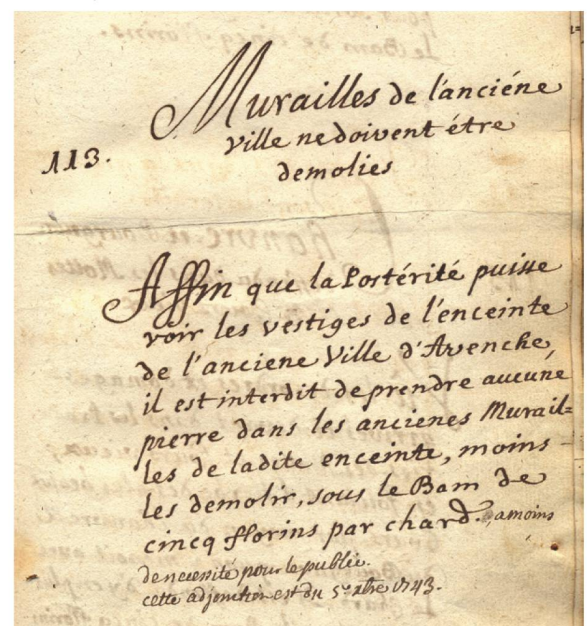 Murailles de l'anciéne
ville ne doivent étre
113.
demolies
Affin que la Postérité puisse
voir les vestiges de l'enceinte
de l'anciene Ville d'Avenche,
il est interdit de prendre aucune
pierre dans les ancienes Murail=
les de ladite enceinte, moins
les demolir, sous le Bam de
cinq florins par chard. amoins
de necessité pour le public.
cette adjonction est du 5e xbre 1743.